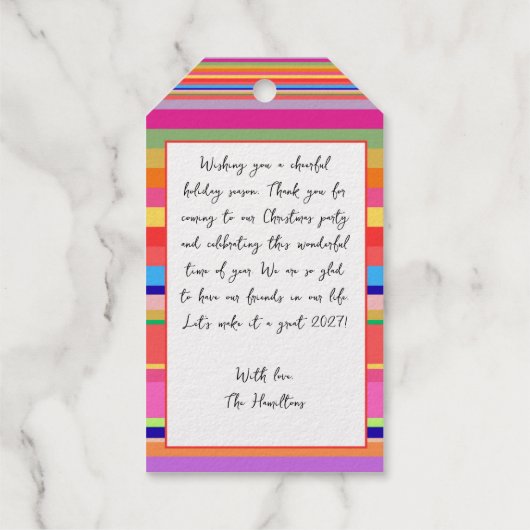 Wishing you a cheerful
holiday season. Thank you for
coming to our Christmas party
and celebrating this wonderful
time of year. We are so glad
to have our friends in our life.
Let's make it a great 2027!
With love,
The Hamiltons